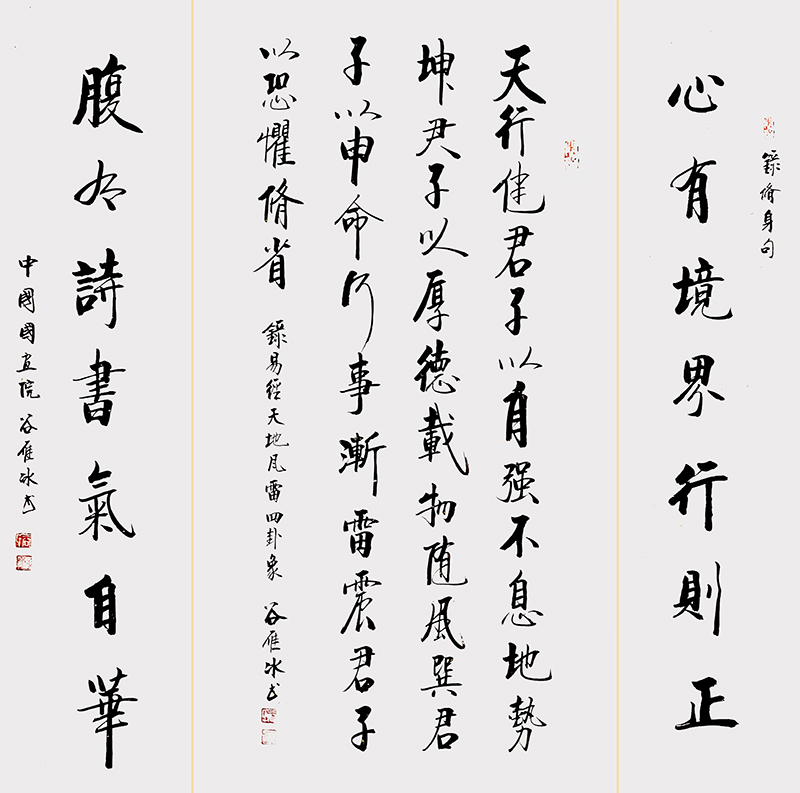 錄脩身句
心有境界行則正
天行健君子以自强不息地勢
坤君子以厚德載物随風巽君
子以申命行事漸雷震君子
以恐懼脩省
錄易經天地風雷四卦象 谷雁冰書
腹有詩書氣自華
中國國画院 谷雁冰書